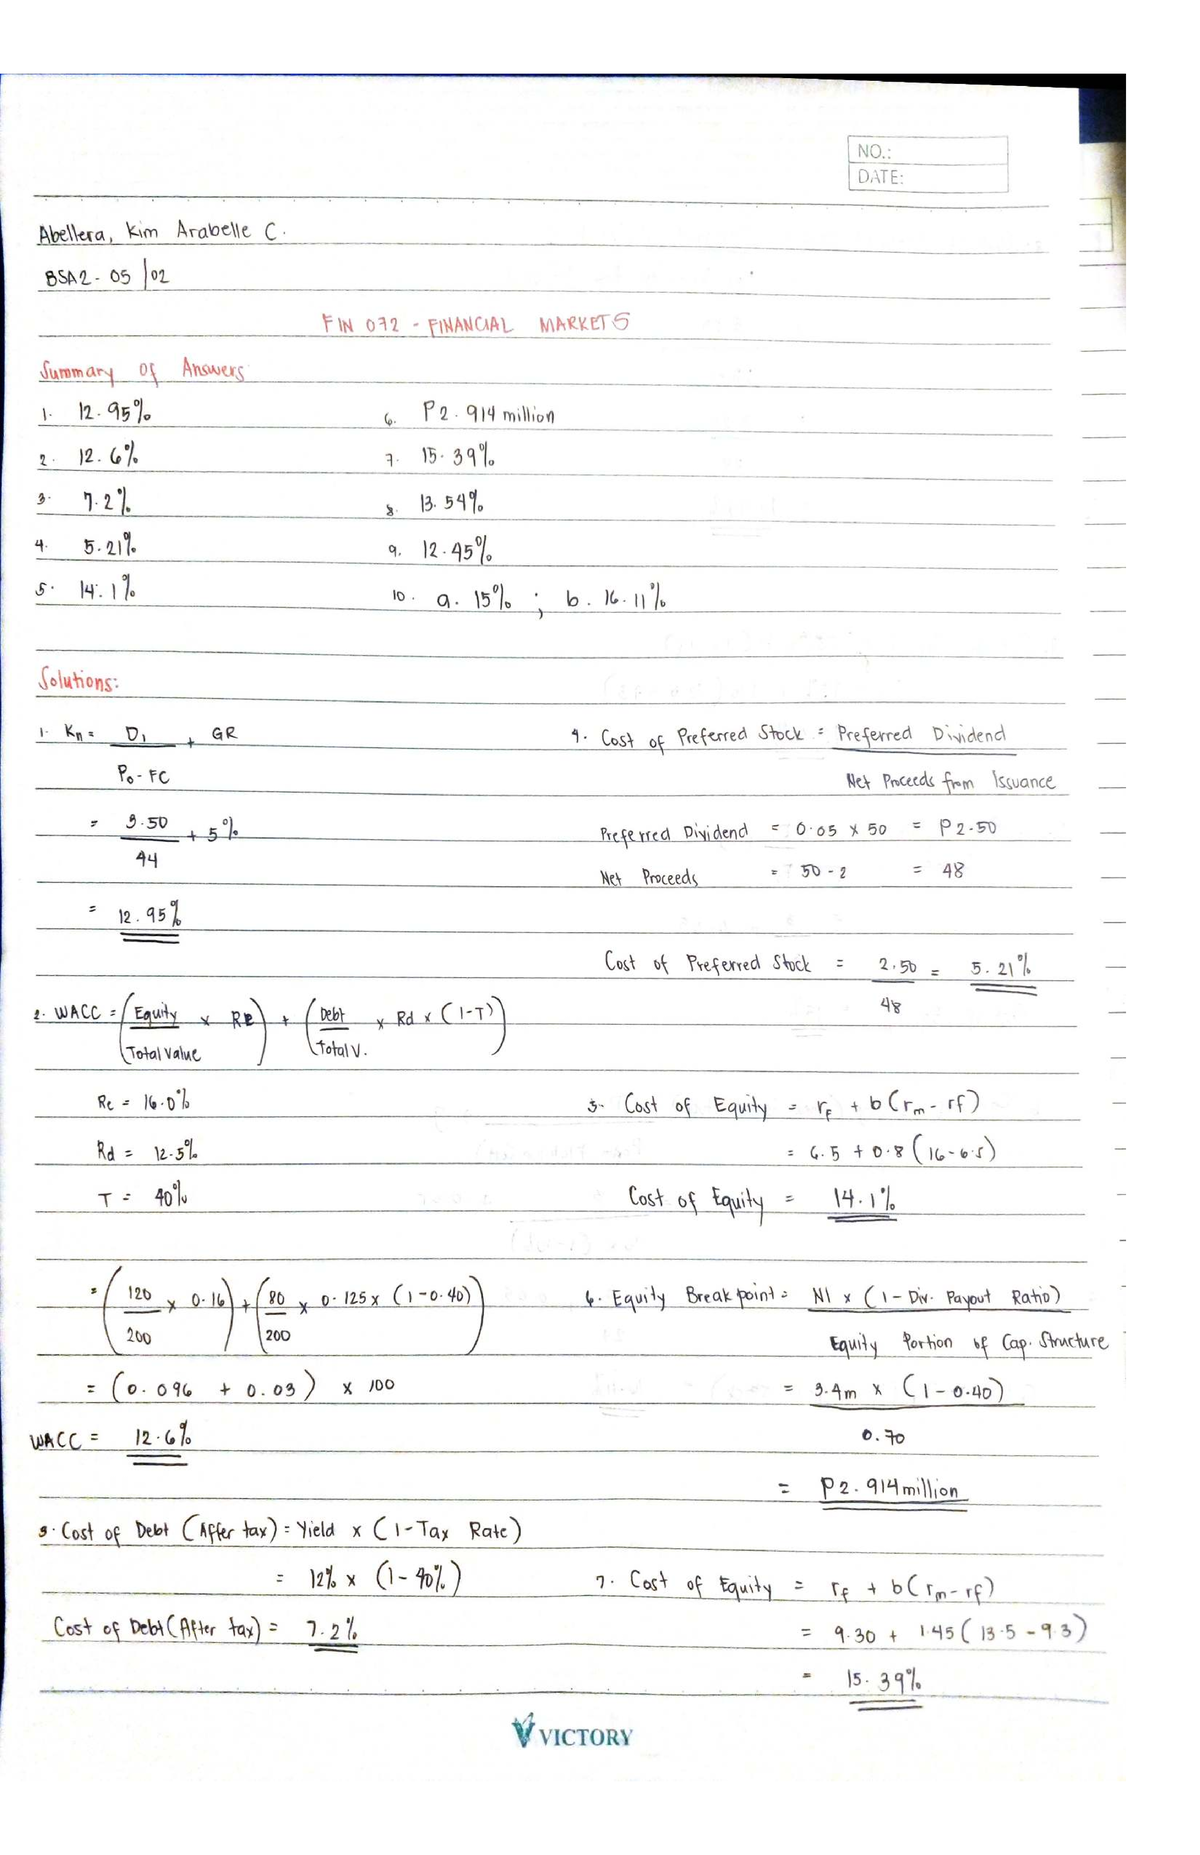 NO.:
DATE:
Abellera, Kim Arabelle C.
BSA2 - 05 / 02
FIN 072 - FINANCIAL MARKETS
Summary of Answers
1. 12.95%
2. 12.6%
3. 7.2%
4. 5.21%
5. 14.1%
6. P2.914 million
7. 15.39%
8. 13.54%
9. 12.45%
10. a. 15% ; b. 16.11%
Solutions:
1. Kn = D1 + GR
P0 - FC
= 3.50 + 5%
44
= 12.95%
2. WACC = (Equity x Re) + (Debt x Rd x (1-T))
Total Value Total V.
Re = 16.0%
Rd = 12.5%
T = 40%
= (120 x 0.16) + (80 x 0.125 x (1-0.40))
200 200
= (0.096 + 0.03) x 100
WACC = 12.6%
3. Cost of Debt (After tax) = Yield x (1-Tax Rate)
= 12% x (1-40%)
Cost of Debt (After tax) = 7.2%
4. Cost of Preferred Stock = Preferred Dividend
Net Proceeds from Issuance
Preferred Dividend = 0.05 x 50 = P2.50
Net Proceeds = 50 - 2 = 48
Cost of Preferred Stock = 2.50 = 5.21%
48
5. Cost of Equity = rf + b(rm - rf)
= 6.5 + 0.8 (16-6.5)
Cost of Equity = 14.1%
6. Equity Breakpoint = NI x (1 - Div. Payout Ratio)
Equity Portion of Cap. Structure
= 3.4m x (1-0.40)
0.70
= P2.914 million
7. Cost of Equity = rf + b(rm-rf)
= 9.30 + 1.45(13.5-9.3)
= 15.39%
VICTORY